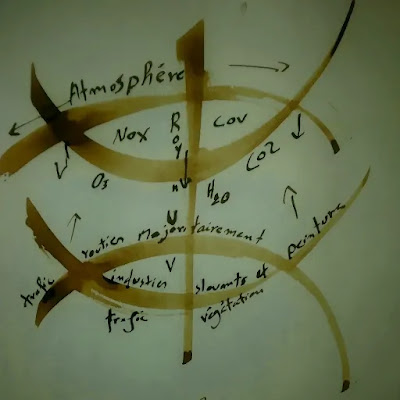 Atmosphére
Nox
COV
CO2
O3
H2O
U
V
trafic routier Majoritairement
slovants et peinture
trafic
végétation